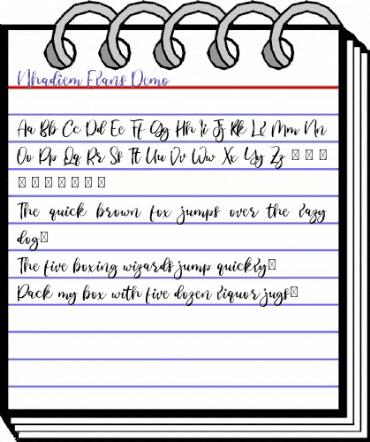 Nhadiem Elans Demo
Aa Bb Cc Dd Ee Ff Gg Hh Ii Jj Kk Ll Mm Nn
Oo Pp Qq Rr Ss Tt Uu Vv Ww Xx Yy Zz
The quick brown fox jumps over the lazy
dog
The five boxing wizards jump quickly
Pack my box with five dozen liquor jugs